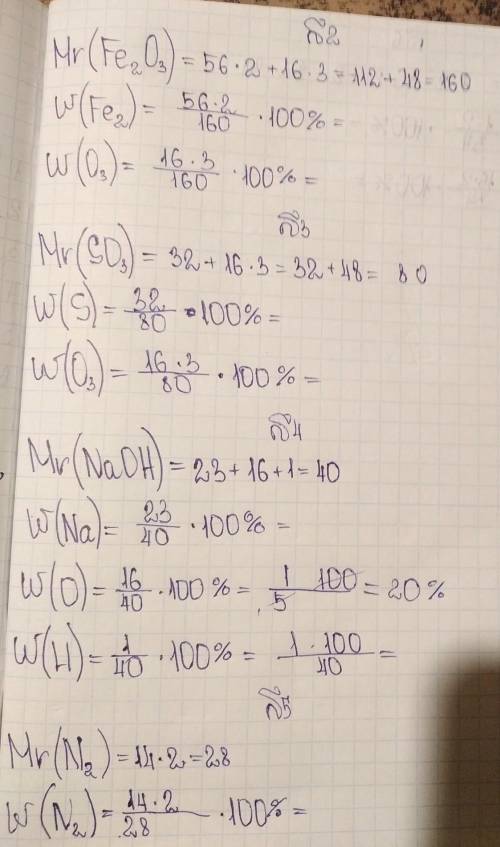 №2
Mr(Fe₂O₃) = 56·2 + 16·3 = 112 + 48 = 160
W(Fe₂) = 56·2/160 · 100% =
W(O₃) = 16·3/160 · 100% =
№3
Mr(SO₃) = 32 + 16·3 = 32 + 48 = 80
W(S) = 32/80 · 100% =
W(O₃) = 16·3/80 · 100% =
№4
Mr(NaOH) = 23 + 16 + 1 = 40
W(Na) = 23/40 · 100% =
W(O) = 16/40 · 100% = 1 100/5 = 20%
W(H) = 1/40 · 100% = 1·100/40 =
№5
Mr(N₂) = 14·2 = 28
W(N₂) = 14·2/28 · 100% =